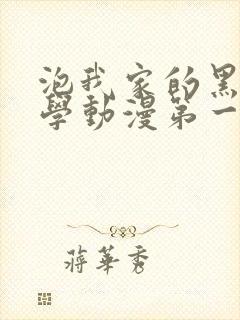 泡我家的黑
學動漫第一
蔣華秀